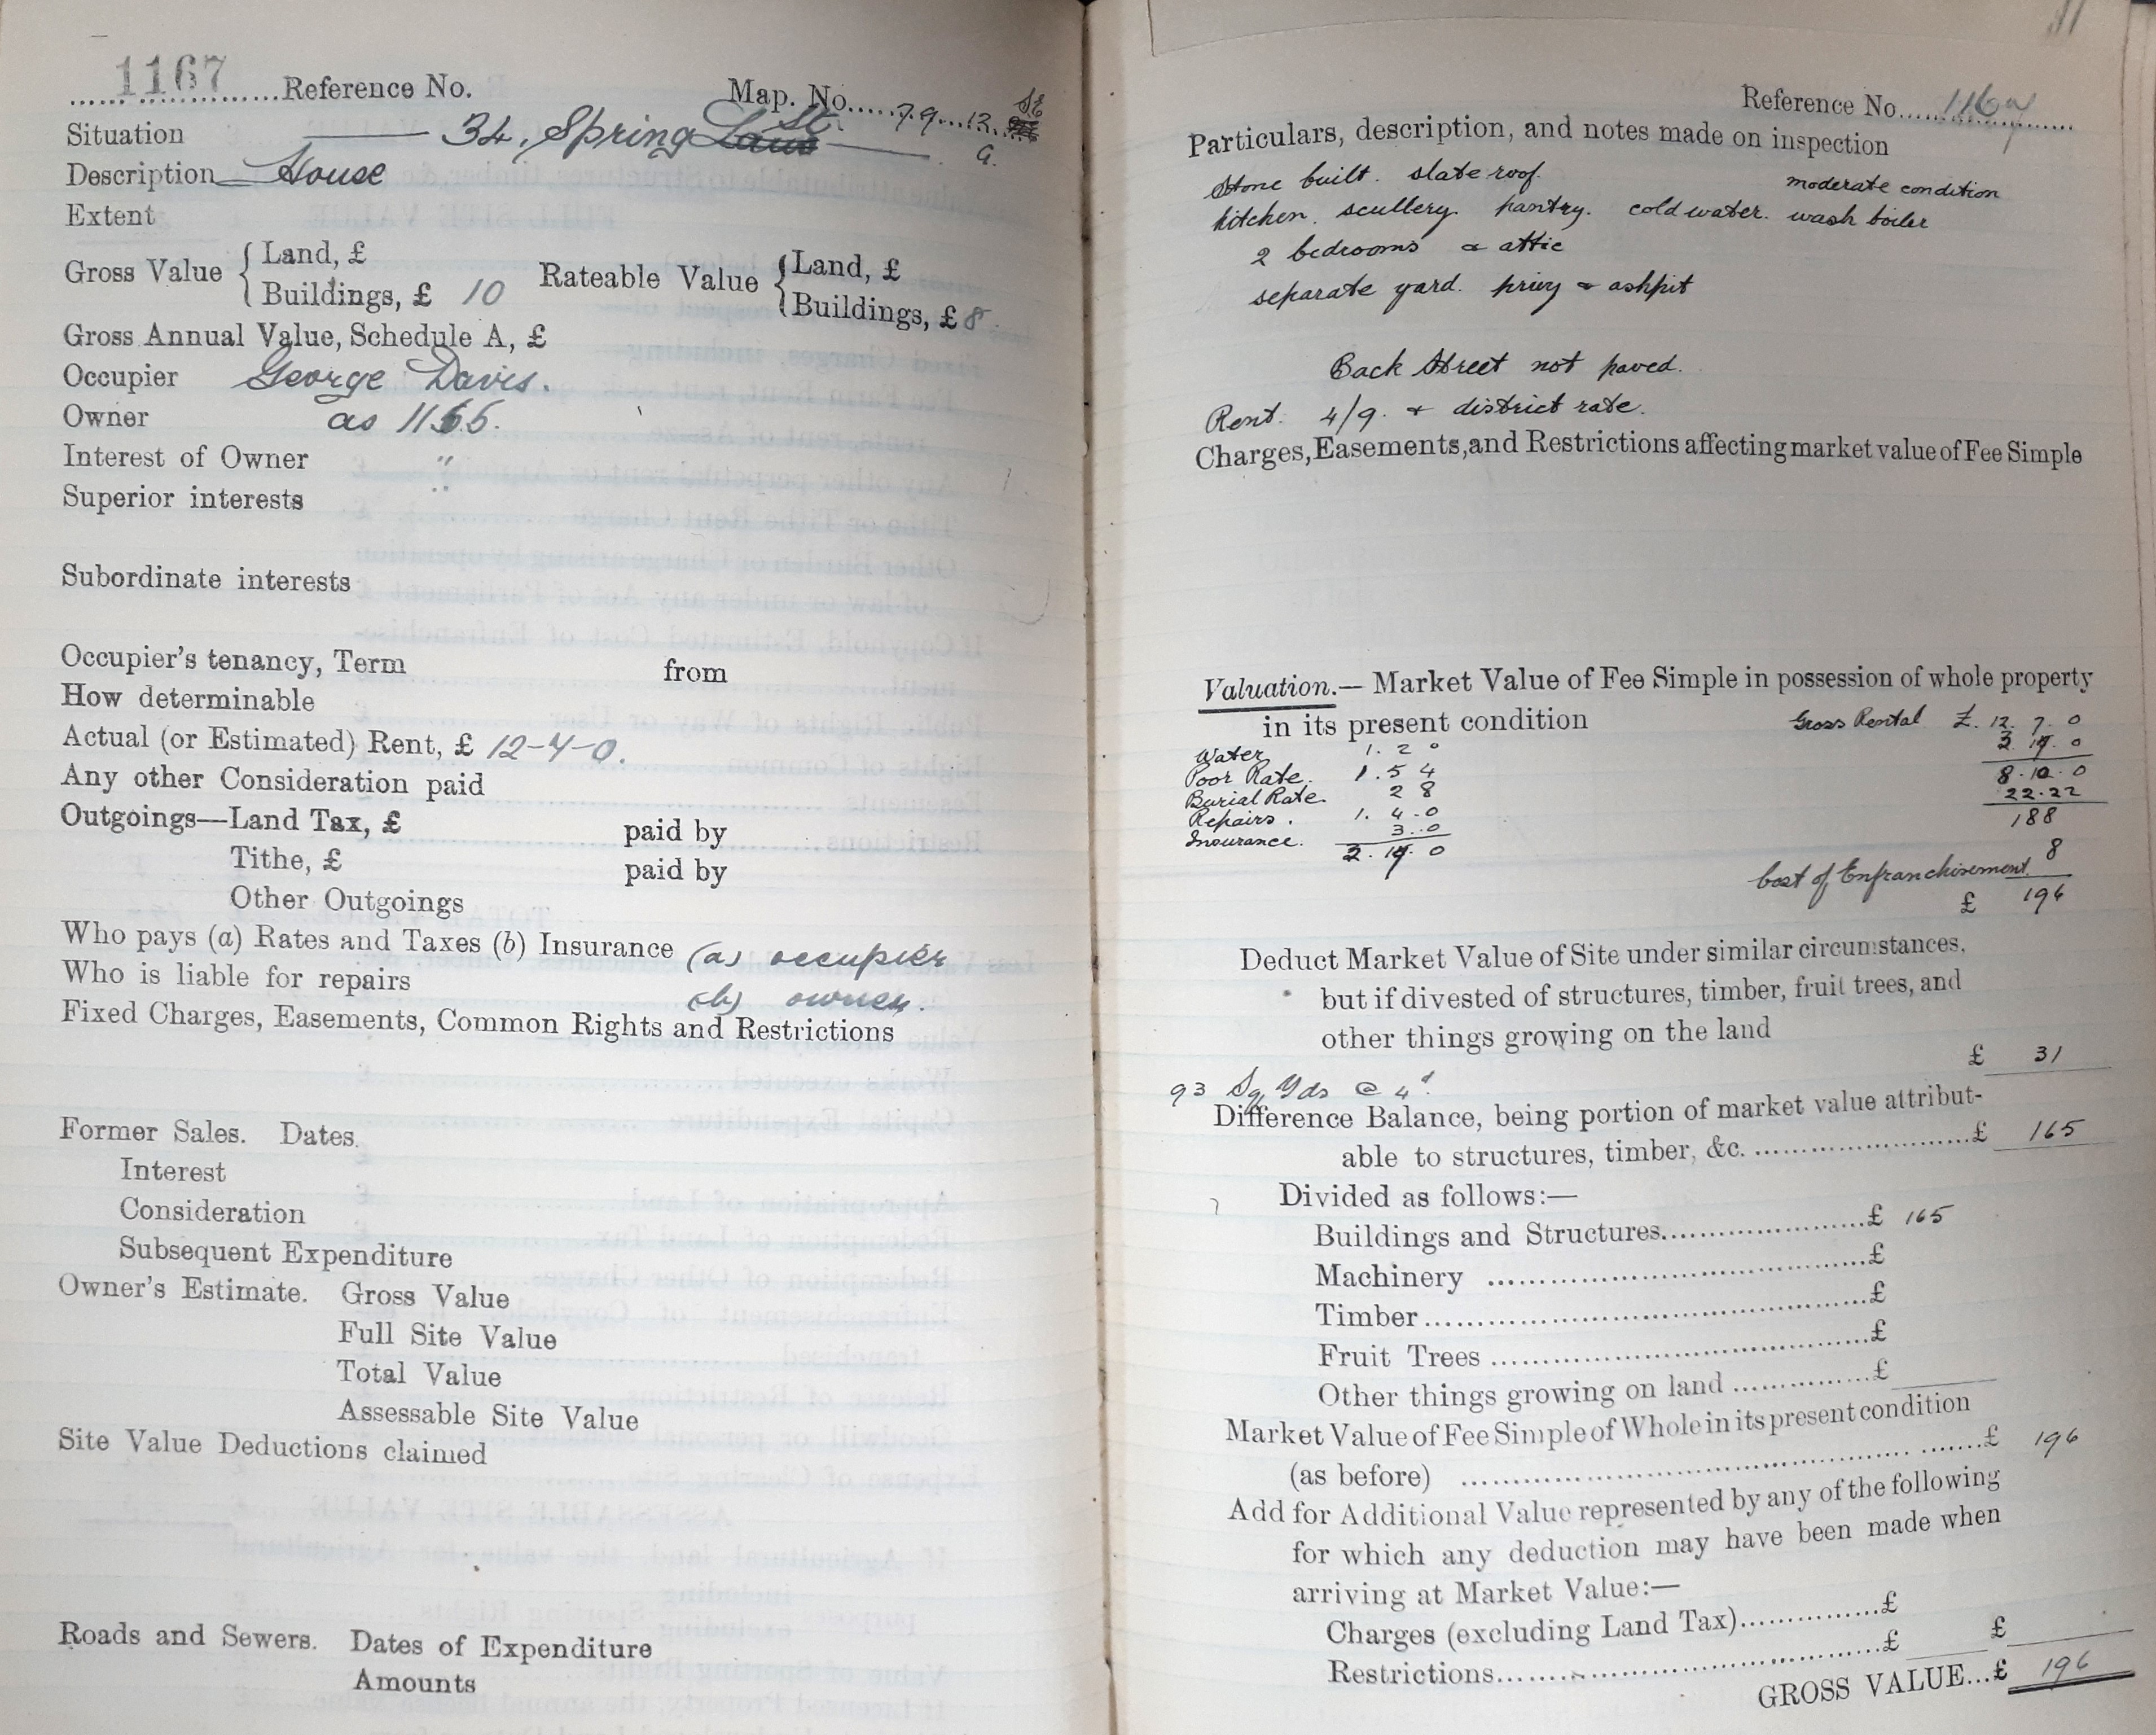 1167 Reference No.
Map. No. 79.12. SE
9.
Situation 34, Spring Lane St.
Description House
Extent
Gross Value { Land, £
Buildings, £ 10
Rateable Value { Land, £
Buildings, £ 8
Gross Annual Value, Schedule A, £
Occupier George Davis.
Owner as 1166.
Interest of Owner "
Superior interests "
Subordinate interests
Occupier's tenancy, Term from
How determinable
Actual (or Estimated) Rent, £ 12-4-0.
Any other Consideration paid
Outgoings—Land Tax, £ paid by
Tithe, £ paid by
Other Outgoings
Who pays (a) Rates and Taxes (b) Insurance (a) occupier
Who is liable for repairs (b) owner.
Fixed Charges, Easements, Common Rights and Restrictions
Former Sales. Dates
Interest
Consideration
Subsequent Expenditure
Owner's Estimate. Gross Value
Full Site Value
Total Value
Assessable Site Value
Site Value Deductions claimed
Roads and Sewers. Dates of Expenditure
Amounts
Reference No. 1167
Particulars, description, and notes made on inspection
Stone built. slate roof. moderate condition
kitchen. scullery. pantry. cold water. wash boiler
2 bedrooms & attic
separate yard. privy & ashpit
Back Street not paved.
Rent. 4/9. + district rate.
Charges, Easements, and Restrictions affecting market value of Fee Simple
Valuation.— Market Value of Fee Simple in possession of whole property
in its present condition
Gross Rental £. 12. 7. 0
3. 17. 0
8. 10. 0
22.22
188
Water 1. 2 0
Poor Rate. 1. 5 4
Burial Rate. 2 8
Repairs. 1. 4. 0
Insurance. 3. 0
3. 17. 0
Cost of Enfranchisement. 8
£ 196
Deduct Market Value of Site under similar circumstances,
but if divested of structures, timber, fruit trees, and
other things growing on the land
£ 31
93 Sq Yds @ 4d.
Difference Balance, being portion of market value attribut-
able to structures, timber, &c. £ 165
Divided as follows:—
Buildings and Structures £ 165
Machinery £
Timber £
Fruit Trees £
Other things growing on land £
Market Value of Fee Simple of Whole in its present condition
(as before) £ 196
Add for Additional Value represented by any of the following
for which any deduction may have been made when
arriving at Market Value:—
Charges (excluding Land Tax) £
Restrictions £ £
GROSS VALUE...£ 196